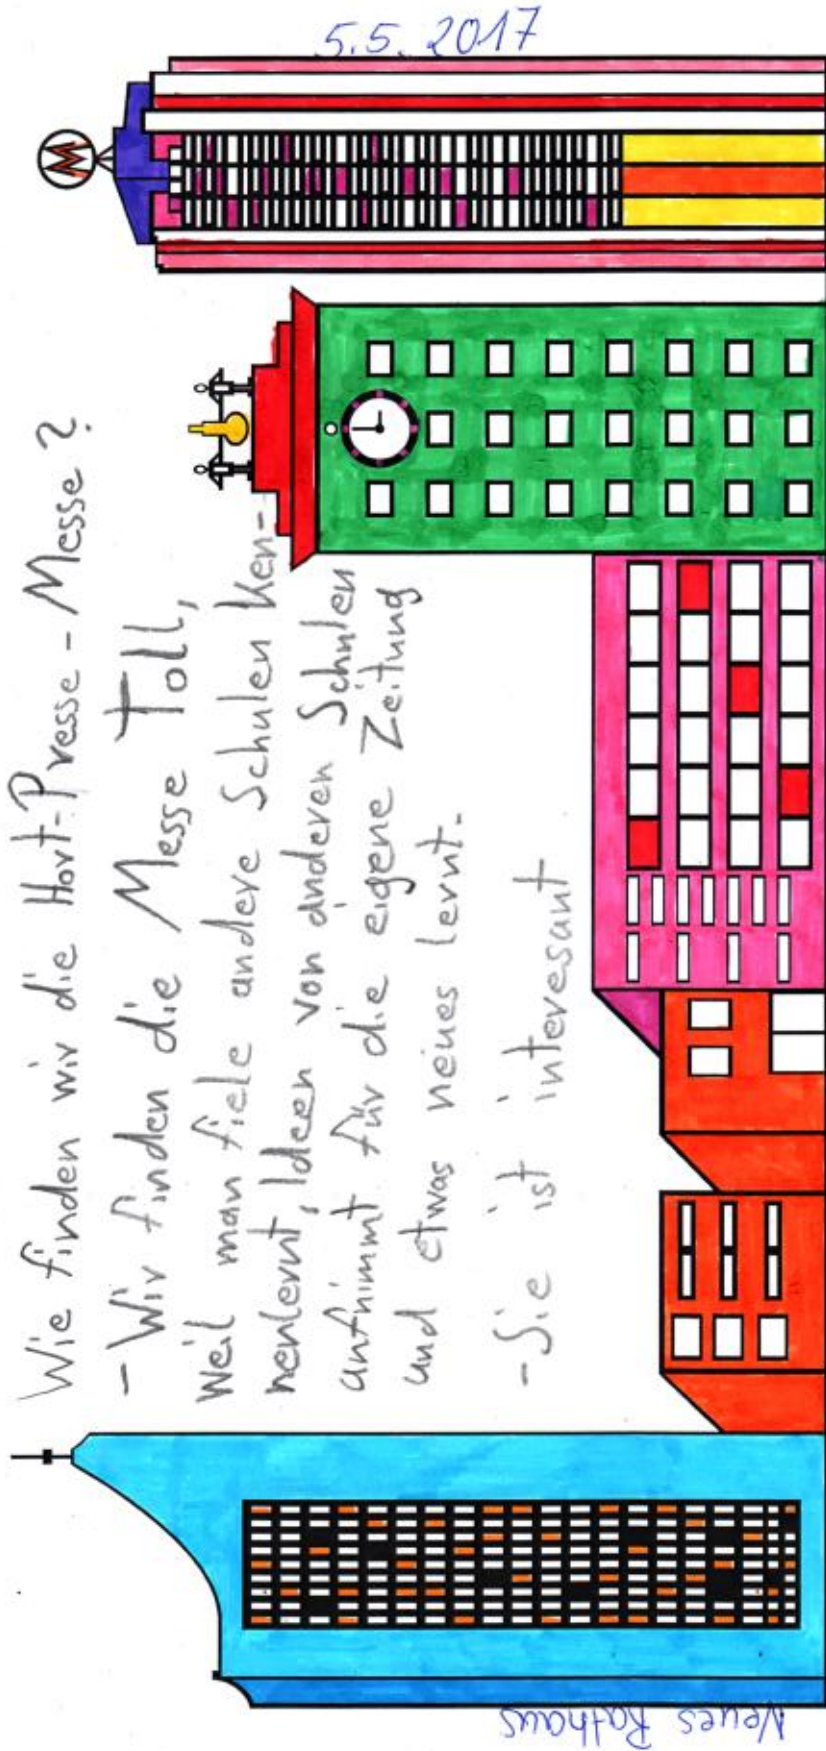 Wie finden wir die Hort-Presse-Messe?
- Wir finden die Messe Toll,
Weil man fiele andere Schulen Ken-
nenlernt, Ideen von anderen Schulen
aufnimmt für die eigene Zeitung
und etwas neues lernt.
- Sie ist interesant
5.5.2017
Neues Rathaus